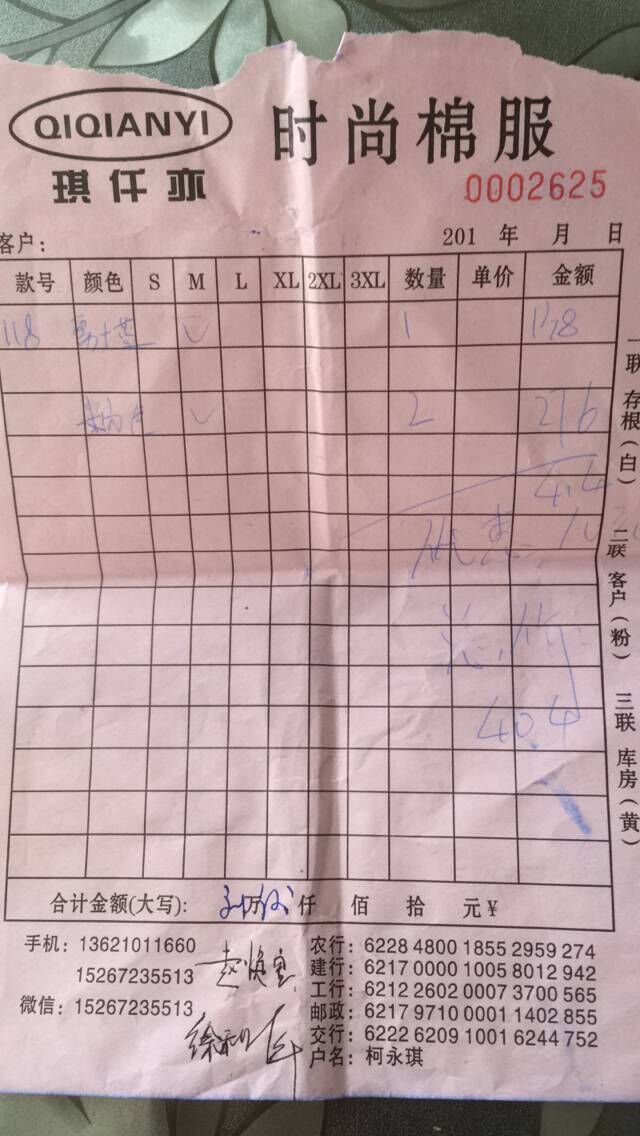 QIQIANYI
琪仟亦
时尚棉服
0002625
客户： 201 年 月 日
款号 颜色 S M L XL 2XL 3XL 数量 单价 金额
118 1 138
2 276
414
404
一联 存根（白） 二联 客户（粉） 三联 库房（黄）
合计金额(大写)： 万 仟 佰 拾 元￥
手机：13621011660
15267235513
微信：15267235513
农行：6228 4800 1855 2959 274
建行：6217 0000 1005 8012 942
工行：6212 2602 0007 3700 565
邮政：6217 9710 0001 1402 855
交行：6222 6209 1001 6244 752
户名：柯永琪